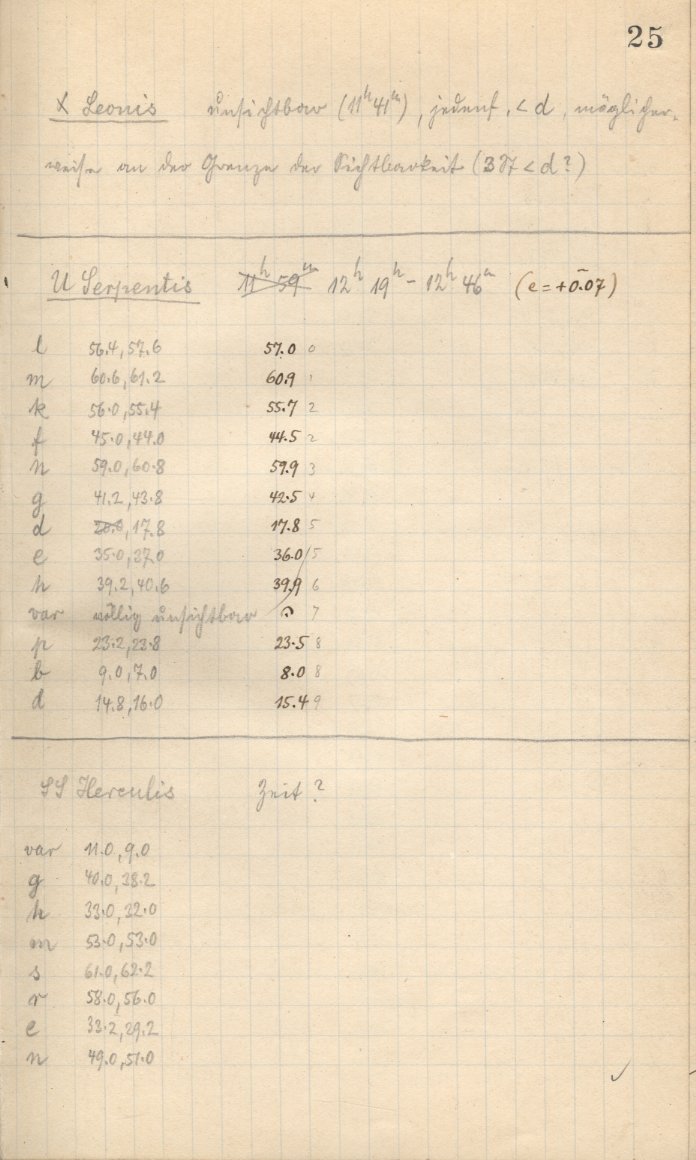 25
X Leonis unsichtbar (11h 41m), jedenf. < d, möglicher-
weise an der Grenze der Sichtbarkeit (3 < d?)
U Serpentis 11h 59m 12h 19h - 12h 46m (e = +0.07)
l 56.4, 57.6 57.0 0
m 60.6, 61.2 60.9 1
k 56.0, 55.4 55.7 2
f 45.0, 44.0 44.5 2
n 59.0, 60.8 59.9 3
g 41.2, 43.8 42.5 4
d 20.0, 17.8 17.8 5
e 35.0, 37.0 36.0 5
h 39.2, 40.6 39.9 6
var völlig unsichtbar 7
p 23.2, 23.8 23.5 8
b 9.0, 7.0 8.0 8
d 14.8, 16.0 15.4 9
SS Herculis Zeit?
var 11.0, 9.0
g 40.0, 38.2
h 33.0, 32.0
m 53.0, 53.0
s 61.0, 62.2
r 58.0, 56.0
e 33.2, 29.2
n 49.0, 51.0